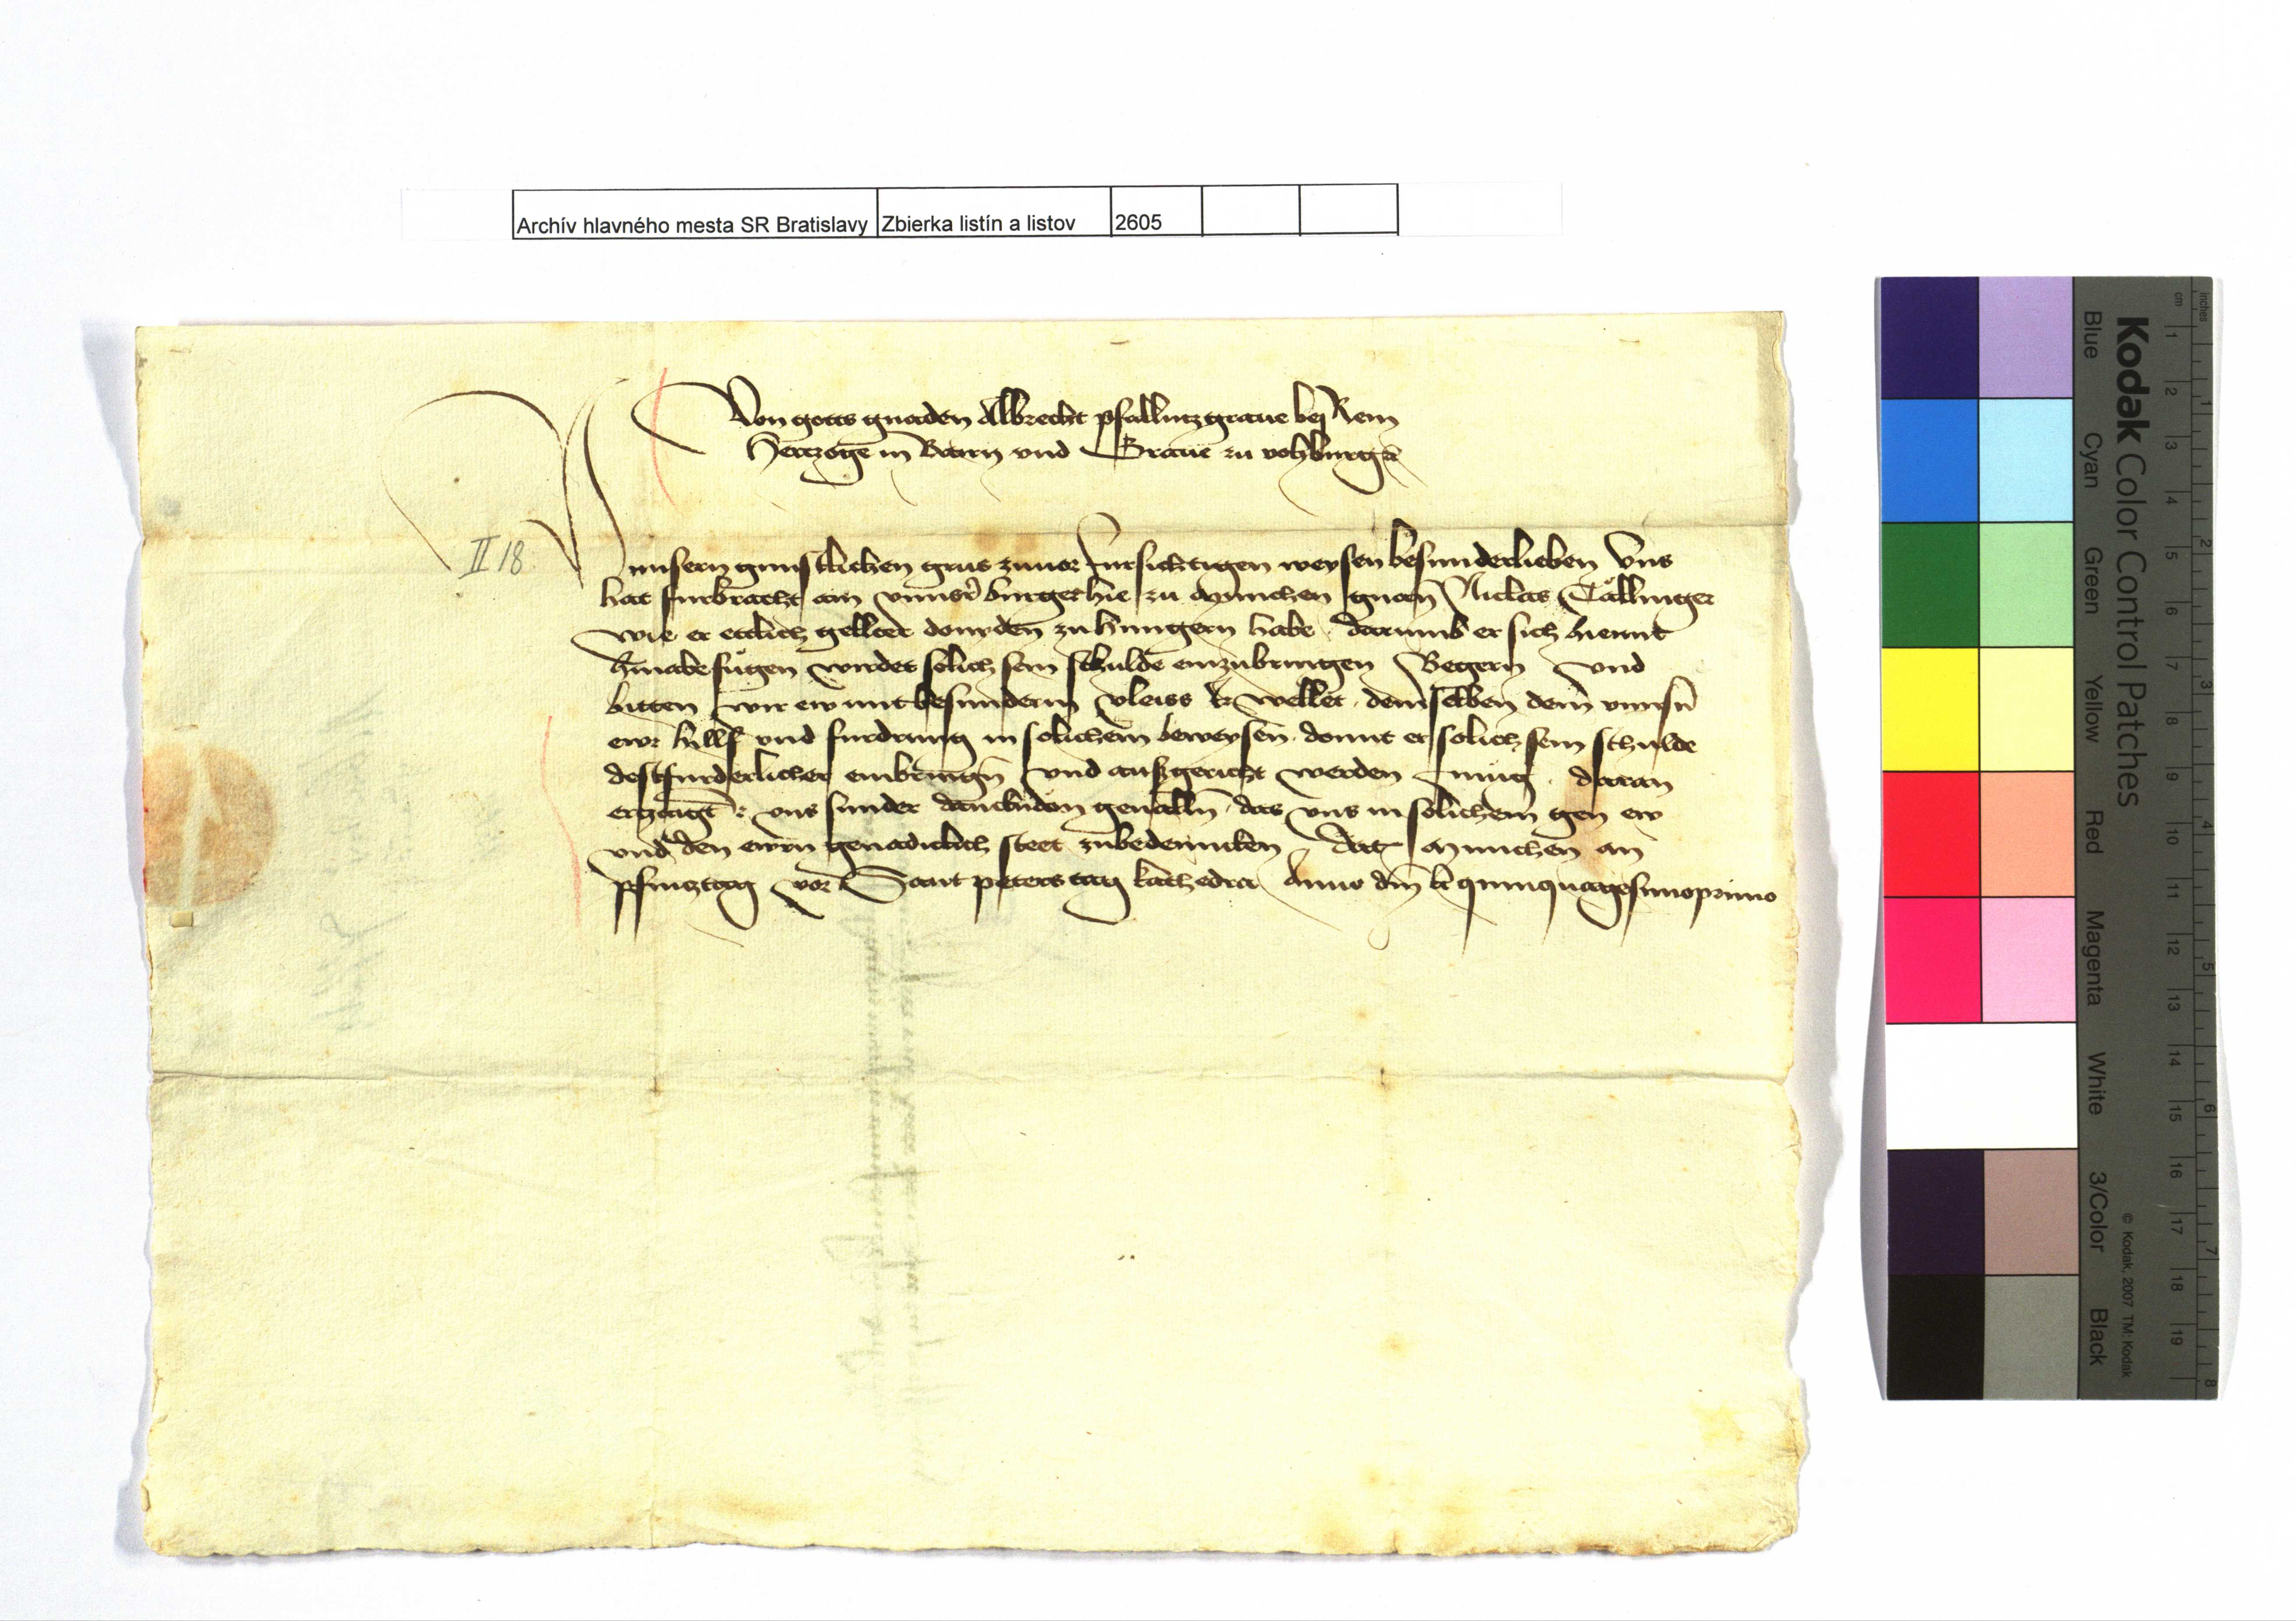 Archív hlavného mesta SR Bratislavy Zbierka listín a listov 2605
Von gotts gnaden Albrecht pfallntzgraue bej Rein
Hertzoge in Bairn vnd Graue zu vohburg ec
II 18
Vnnsern gunstlichen grus zuuor Fursichtigen weysen besunderlieben Vns
hat furbracht ain vnnsr burger hie zu Mynnchen gnan Niclas Tallinger
wie er ettlich gellter donyden zu Hungern habe darumb er sich hiemit
hinabe fügen wirdet solich sein schulde einzubringen Begern vnd
bitten wir ew mit besunderm vleiss ir wellet demselben dem vnnsn
ewr hillff vnd furdrung in solichem beweysen domit er solich sein schulde
destfurderlicher einbringn vnd außgericht werden müg daran
erzaigt ir vns sunder danckndn geualln das vns in solichem gen ew
vnd den ewrn genadiclich steet zubedenncken Dat Munchen an
pfincztag vor Sant peters tag kathedra Anno dm ec quinquagesimoprimo
Kodak Color Control Patches
Blue Cyan Green Yellow Red Magenta White 3/Color Black
© Kodak, 2007 TM: Kodak
inches 1 2 3 4 5 6 7 8
cm 1 2 3 4 5 6 7 8 9 10 11 12 13 14 15 16 17 18 19